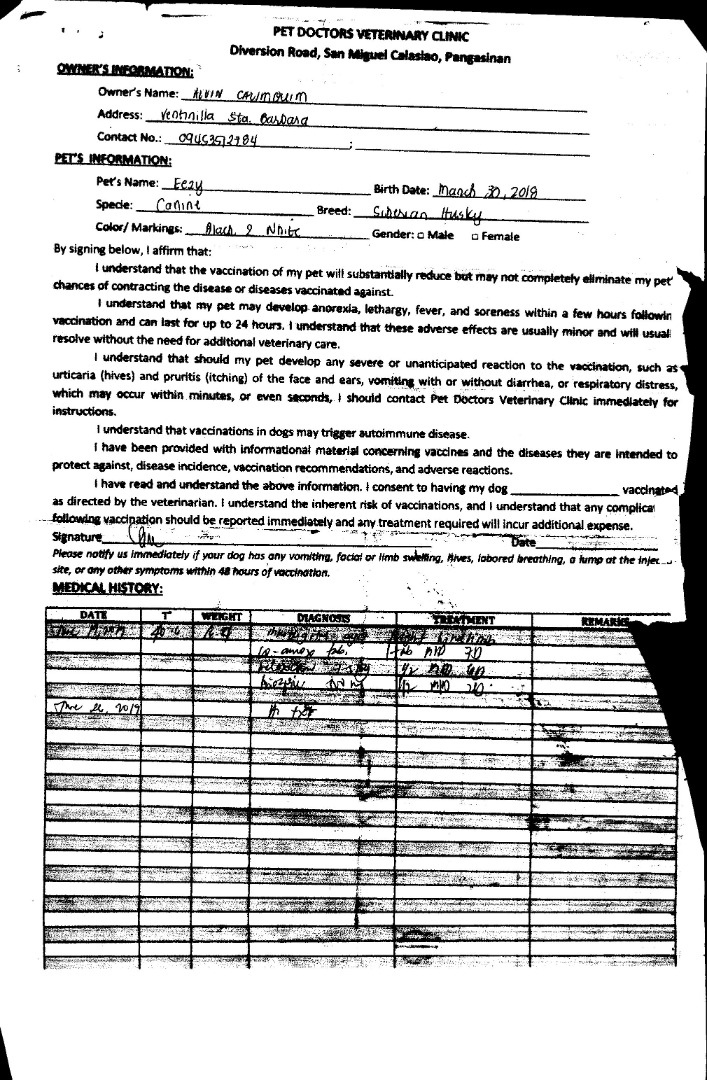 PET DOCTORS VETERINARY CLINIC
Diversion Road, San Miguel Calasiao, Pangasinan
OWNER'S INFORMATION:
Owner's Name: ALVIN
Address: Ventinilla Sta. Barbara
Contact No.:
PET'S INFORMATION:
Pet's Name: Eezy Birth Date: March 30, 2018
Specie: Canine Breed: Siberian Husky
Color/ Markings: Black & White Gender: □ Male □ Female
By signing below, I affirm that:
I understand that the vaccination of my pet will substantially reduce but may not completely eliminate my pet'
chances of contracting the disease or diseases vaccinated against.
I understand that my pet may develop anorexia, lethargy, fever, and soreness within a few hours followin
vaccination and can last for up to 24 hours. I understand that these adverse effects are usually minor and will usual
resolve without the need for additional veterinary care.
I understand that should my pet develop any severe or unanticipated reaction to the vaccination, such as
urticaria (hives) and pruritis (itching) of the face and ears, vomiting with or without diarrhea, or respiratory distress,
which may occur within minutes, or even seconds, I should contact Pet Doctors Veterinary Clinic immediately for
instructions.
I understand that vaccinations in dogs may trigger autoimmune disease.
I have been provided with informational material concerning vaccines and the diseases they are intended to
protect against, disease incidence, vaccination recommendations, and adverse reactions.
I have read and understand the above information. I consent to having my dog vaccinated
as directed by the veterinarian. I understand the inherent risk of vaccinations, and I understand that any complicat
following vaccination should be reported immediately and any treatment required will incur additional expense.
Signature Date
Please notify us immediately if your dog has any vomiting, facial or limb swelling, hives, labored breathing, a lump at the injec
site, or any other symptoms within 48 hours of vaccination.
MEDICAL HISTORY:
DATE T° WEIGHT DIAGNOSIS TREATMENT REMARKS
co-amox tab. 1 tab
1/2
1/2
June 2019